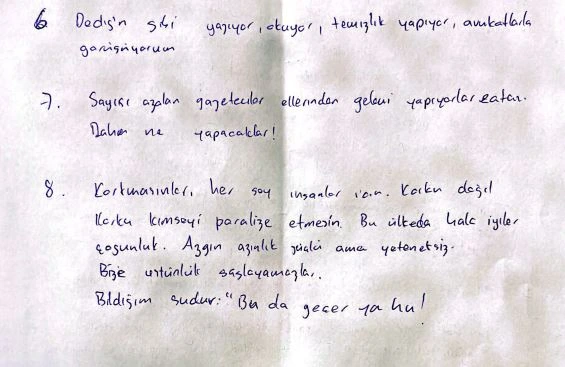 6 Dediğin gibi yazıyor, okuyor, temizlik yapıyor, avukatlarla
görüşüyorum
7. Sayısı azalan gazeteciler ellerinden geleni yapıyorlar zaten.
Daha ne yapacaklar!
8. Korkmasınlar, her şey insanlar için. Korku değil
Korku kimseyi paralize etmesin. Bu ülkede hala iyiler
çoğunluk. Azgın azınlık güçlü ama yeteneksiz.
Bize üstünlük sağlayamazlar.
Bildiğim şudur: "Bu da geçer ya hu!